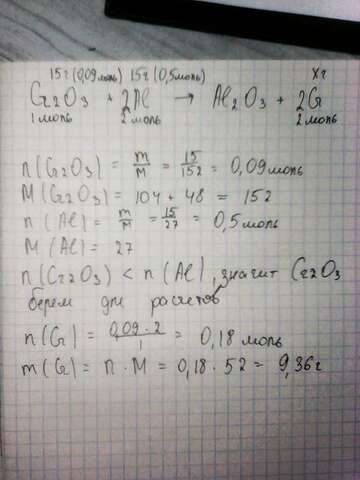 15г (0,09моль) 15г (0,5моль) Xг
Cr2O3 + 2Al → Al2O3 + 2Cr
1 моль 2 моль 2 моль
n(Cr2O3) = m/M = 15/152 = 0,09моль
M(Cr2O3) = 104 + 48 = 152
n(Al) = m/M = 15/27 = 0,5моль
M(Al) = 27
n(Cr2O3) < n(Al), значит Cr2O3
берем для расчетов
n(Cr) = 0,09·2/1 = 0,18 моль
m(Cr) = n·M = 0,18·52 = 9,36г